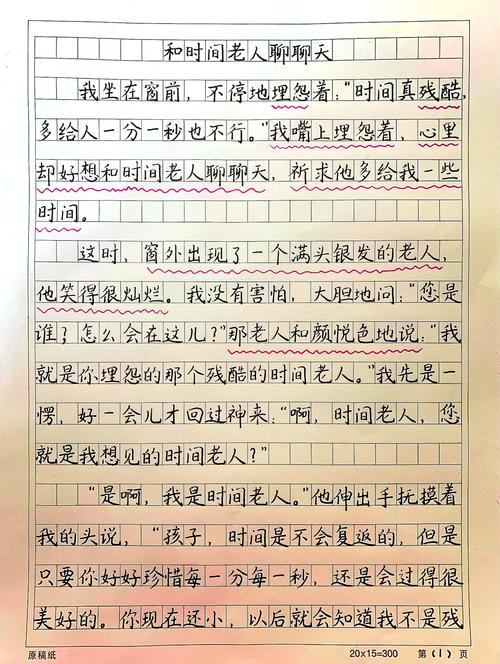 和时间老人聊聊天
我坐在窗前，不停地埋怨着：“时间真残酷，
多给人一分一秒也不行。”我嘴上埋怨着，心里
却好想和时间老人聊聊天，祈求他多给我一些
时间。
这时，窗外出现了一个满头银发的老人，
他笑得很灿烂。我没有害怕，大胆地问：“您是
谁？怎么会在这儿？”那老人和颜悦色地说：“我
就是你埋怨的那个残酷的时间老人。”我先是一
愣，好一会儿才回过神来：“啊，时间老人，您
就是我想见的时间老人？”
“是啊，我是时间老人。”他伸出手抚摸着
我的头说，“孩子，时间是不会复返的，但是
只要你好好珍惜每一分每一秒，还是会过得很
美好的。你现在还小，以后就会知道我不是残
原稿纸 20x15=300 第(1)页